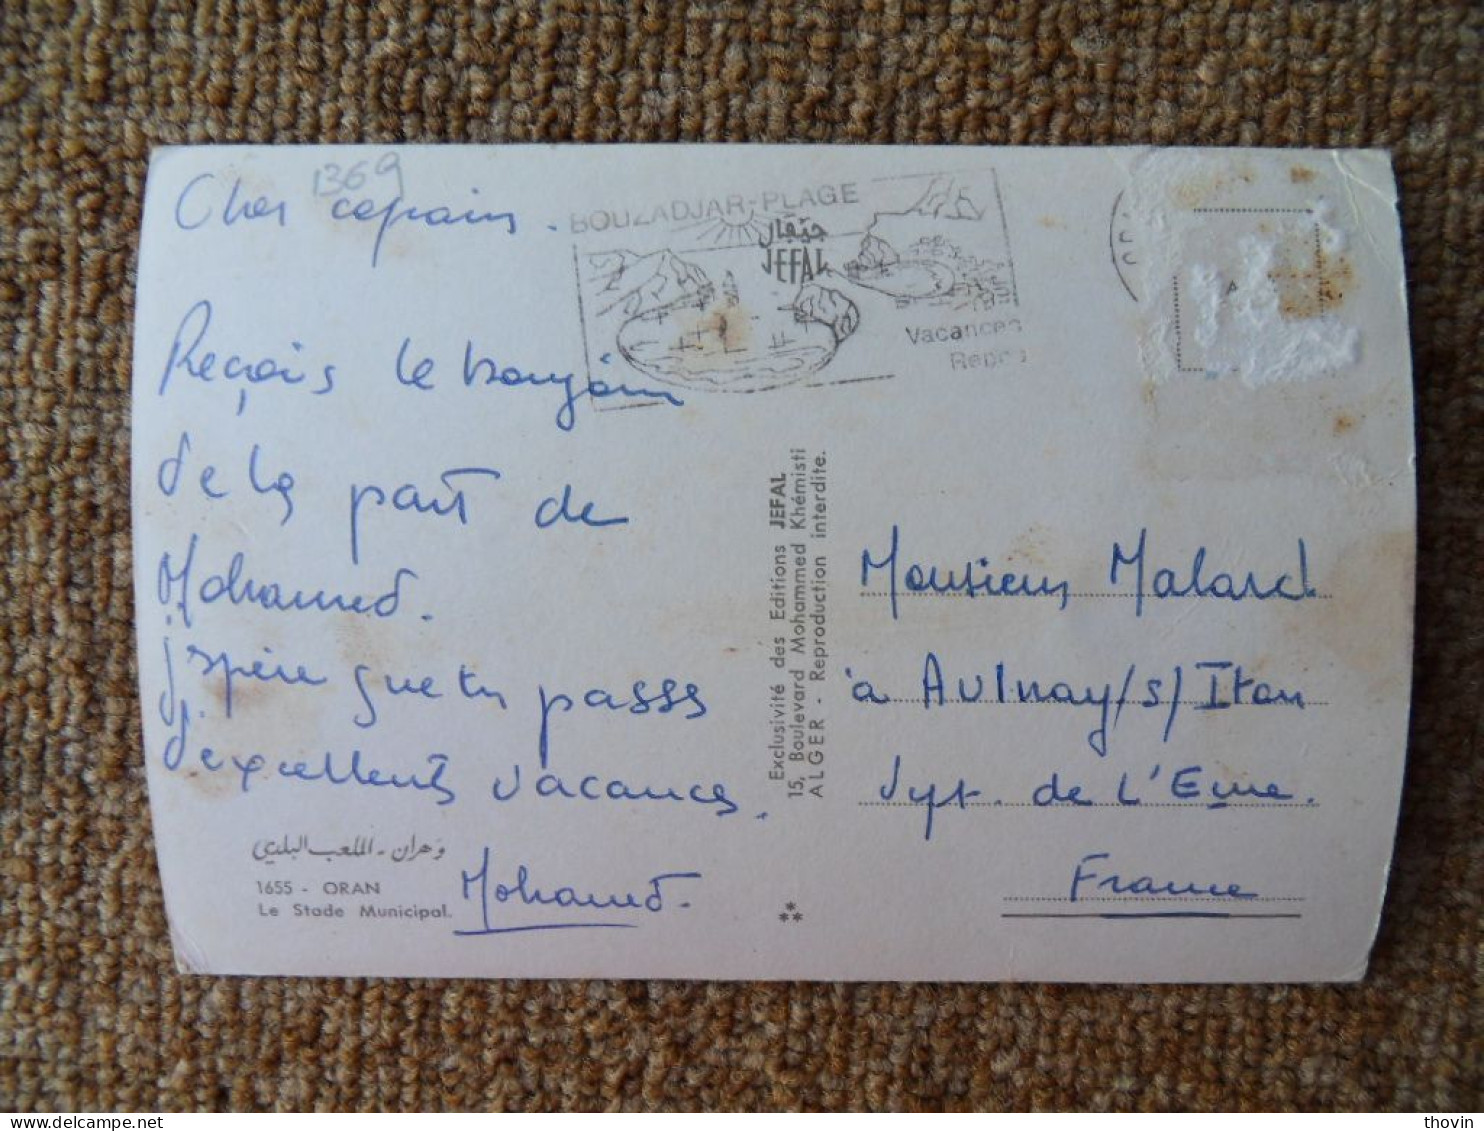 1369
Cher copain.
Reçois le bonjour
de la part de
Mohamed.
j'spère que tu passs
d'excellents vacances.
Mohamed.
وهران - الملعب البلدي
1655 - ORAN
Le Stade Municipal.
BOUZADJAR-PLAGE
جيفال
JEFAL
Vacances
Repos
Exclusivité des Editions JEFAL
15, Boulevard Mohammed Khémisti
ALGER - Reproduction interdite.
Monsieur Malard
à Aulnay/s/Iton
Dept. de L'Eure.
France
thovin